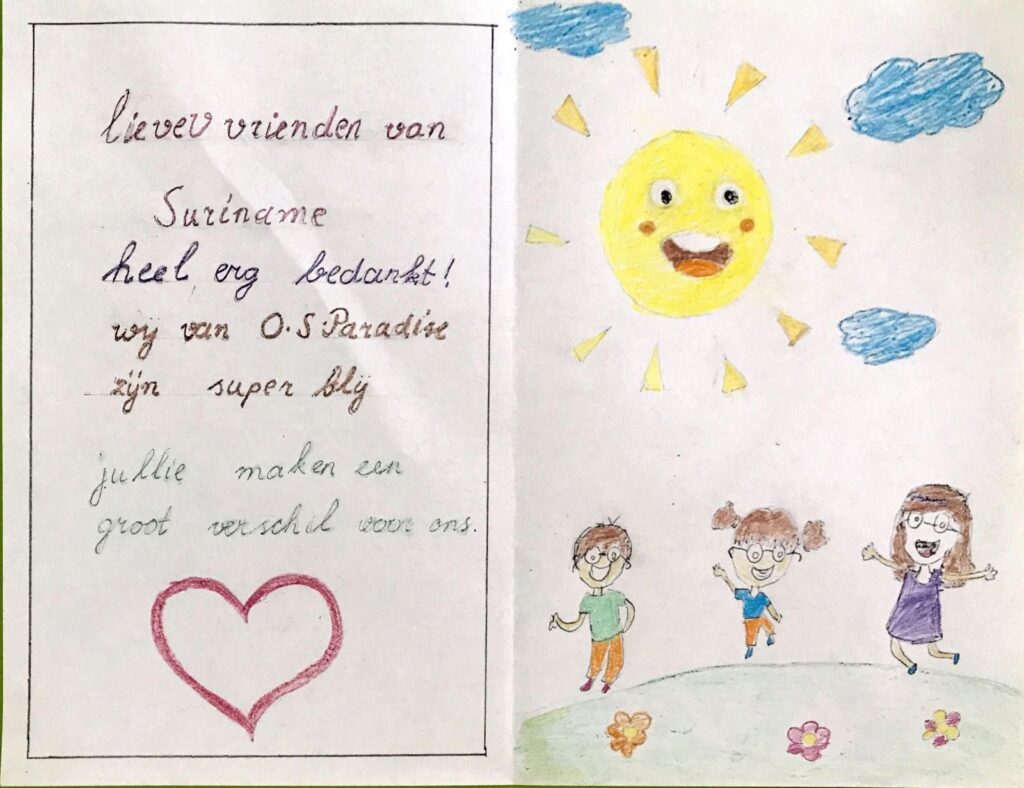 lieveV vrienden van
Suriname
heel erg bedankt!
wij van O.S Paradise
zijn super blij
jullie maken een
groot verschil voor ons.